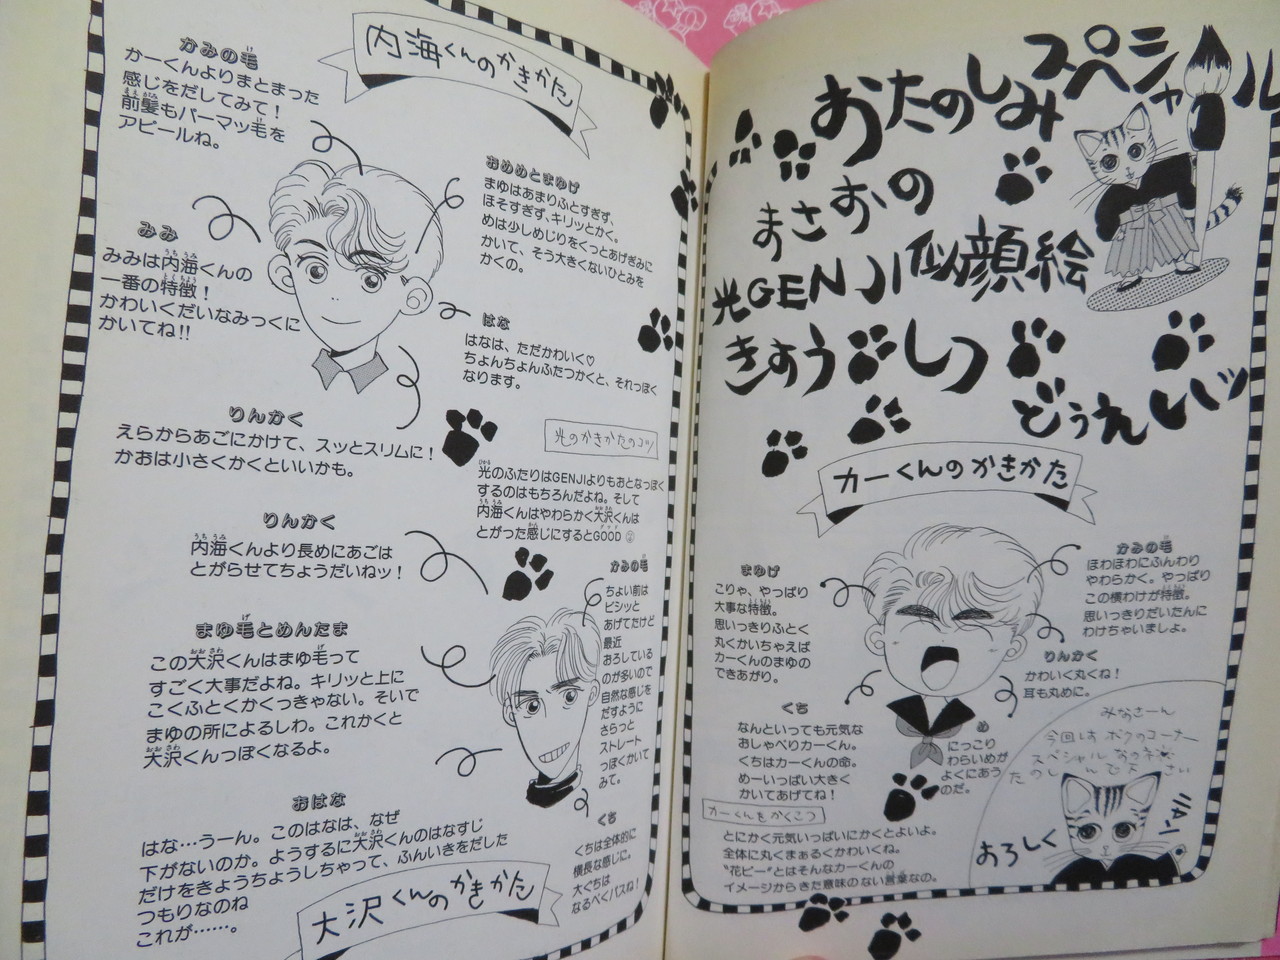 おたのしみスペシャル
まさおの
光GENJI似顔絵
きょうしつ
どぅれいッ
カーくんのかきかた
かみの毛
ほわほわにふんわり
やわらかく。やっぱり
この横わけが特徴。
思いっきりだいたんに
わけちゃいましょ。
まゆげ
こりゃ、やっぱり
大事な特徴。
思いっきりふとく
丸くかいちゃえば
カーくんのまゆの
できあがり。
りんかく
かわいく丸くね!
耳も丸めに。
くち
なんといっても元気な
おしゃべりカーくん。
くちはカーくんの命。
めーいっぱい大きく
かいてあげてね!
め
にっこり
わらいめが
よくにあう
のだ。
カーくんをかくこつ
とにかく元気いっぱいにかくとよいよ。
全体に丸くまぁるくかわいくね。
"花ピー"とはそんなカーくんの
イメージからきた意味のない言葉なの。
みなさーん
今回は ボクのコーナー
スペシャル
おろしく
内海くんのかきかた
かみの毛
かーくんよりまとまった
感じをだしてみて!
前髪もパーマッ毛を
アピールね。
おめめとまゆげ
まゆはあまりふとすぎず、
ほそすぎず、キリッとかく。
めは少しめじりをくっとあげぎみに
かいて、そう大きくないひとみを
かくの。
みみ
みみは内海くんの
一番の特徴!
かわいくだいなみっくに
かいてね!!
はな
はなは、ただかわいく♡
ちょんちょんふたつかくと、それっぽく
なります。
りんかく
えらからあごにかけて、スッとスリムに!
かおは小さくかくといいかも。
光のかきかたのコツ
光のふたりはGENJIよりもおとなっぽく
するのはもちろんだよね。そして
内海くんはやわらかく大沢くんは
とがった感じにするとGOOD
りんかく
内海くんより長めにあごは
とがらせてちょうだいねッ!
かみの毛
ちょい前は
ビシッと
あげてたけど
最近
おろしている
のが多いので
自然な感じを
だすように
さらっと
ストレート
っぽくかいて
みて。
まゆ毛とめんたま
この大沢くんはまゆ毛って
すごく大事だよね。キリッと上に
こくふとくかくっきゃない。そいで
まゆの所によるしわ。これかくと
大沢くんっぽくなるよ。
おはな
はな…うーん。このはなは、なぜ
下がないのか。ようするに大沢くんのはなすじ
だけをきょうちょうしちゃって、ふんいきをだした
つもりなのね
これが……。
くち
くちは全体的に
横長な感じに。
大ぐちは
なるべくパスね!
大沢くんのかきかた